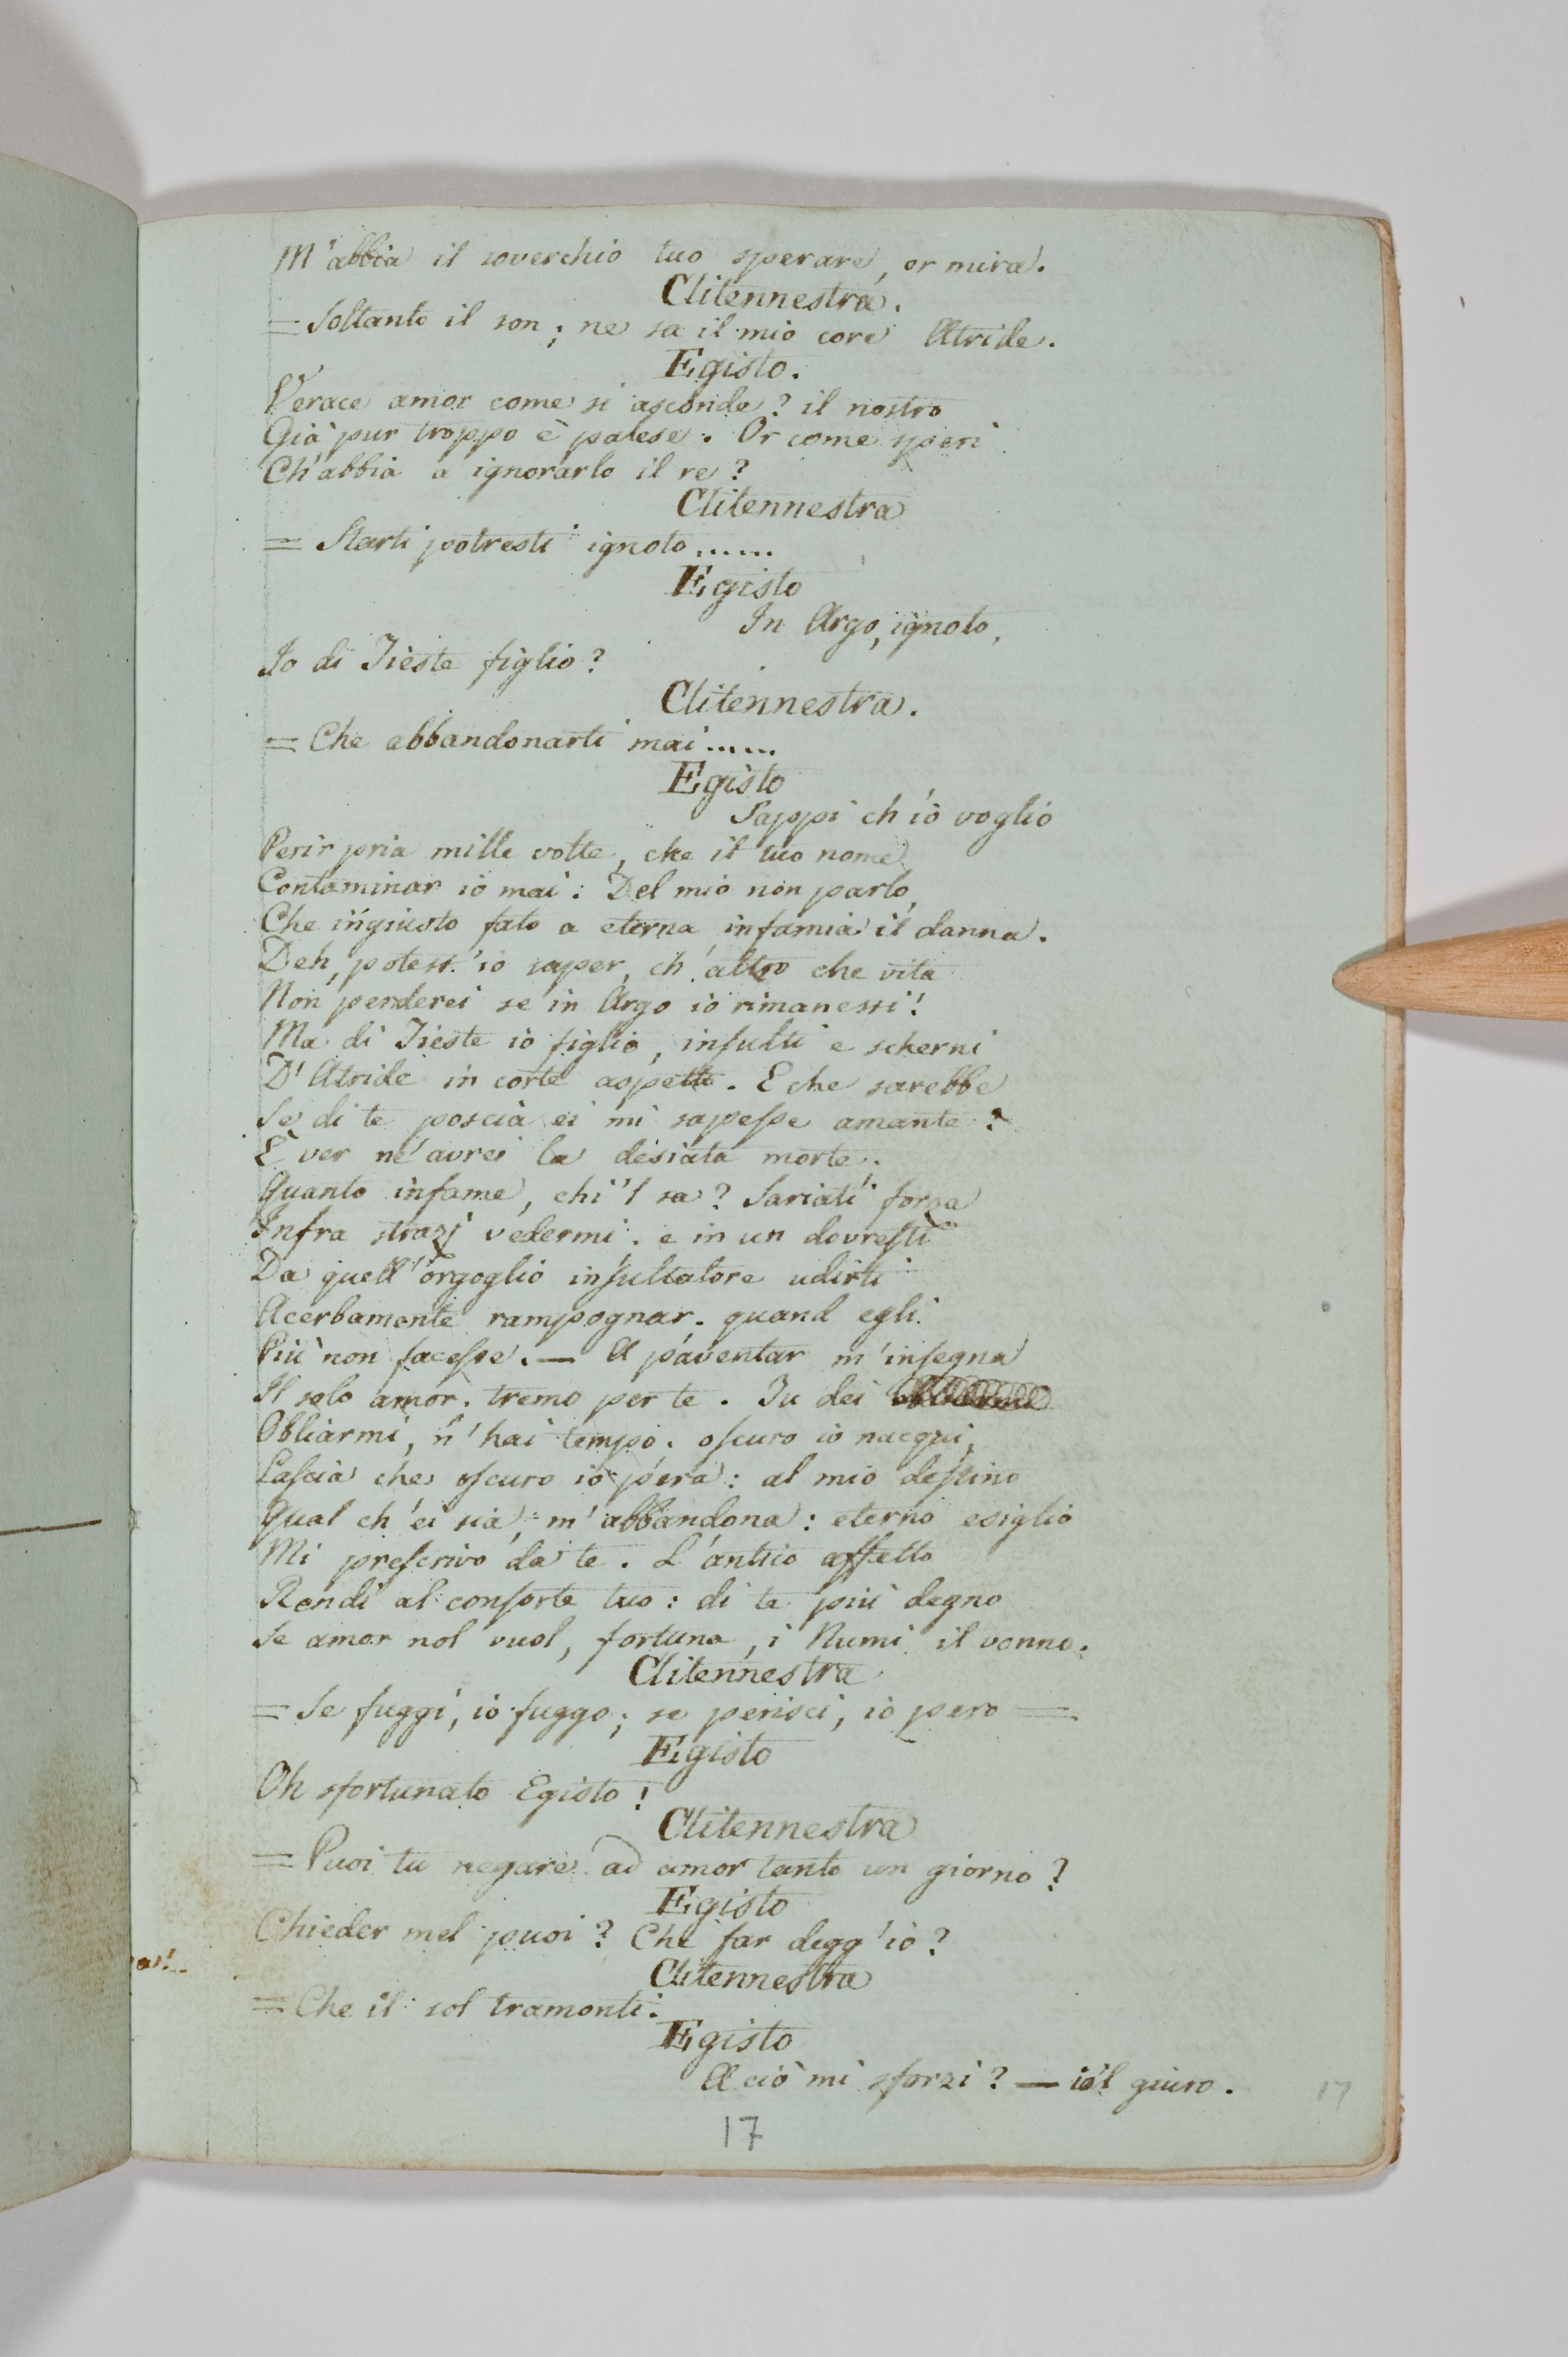 M'abbia il soverchio tuo sperare, or mira.
Clitennestra.
= Soltanto il son; ne sa il mio core Atride.
Egisto.
Verace amor come si asconde? il nostro
Già pur troppo è palese. Or come speri
Ch'abbia a ignorarlo il re?
Clitennestra
= Starti potresti ignoto......
Egisto
In Argo, ignoto,
Io di Tieste figlio?
Clitennestra.
= Che abbandonarti mai......
Egisto
Sappi ch'io voglio
Perir pria mille volte, che il tuo nome
Contaminar io mai: Del mio non parlo,
Che ingiusto fato a eterna infamia il danna.
Deh, potess'io saper, ch'altro che vita
Non perderei se in Argo io rimanessi!
Ma di Tieste io figlio, insulti e scherni
D'Atride in corte aspetto. E che sarebbe
Se di te poscia ei mi sapesse amante?
E ver ne avrei la desiata morte;
Quanto infame, chi'l sa? Sariati forza
Infra strazj vedermi. e in un dovresti
Da quell'orgoglio insultatore udirti
Acerbamente rampognar. quand egli
Più non facesse. — A paventar m'insegna
Il solo amor. tremo per te. Tu dei
Obliarmi, n'hai tempo. oscuro io nacqui,
Lascia che oscuro io pera: al mio destino
Qual ch'ei sia, m'abbandona: eterno esiglio
Mi prescrivo da te. L'antico affetto
Rendi al consorte tuo: di te più degno
Se amor nol vuol, fortuna, i Numi il vonno.
Clitennestra
= Se fuggi, io fuggo; se perisci, io pero =
Egisto
Oh sfortunato Egisto!
Clitennestra
= Puoi tu negare ad amor tanto un giorno?
Egisto
Chieder mel puoi? Che far degg'io?
Clitennestra
= Che il sol tramonti.
Egisto
A ciò mi sforzi? — io'l giuro.
17
17